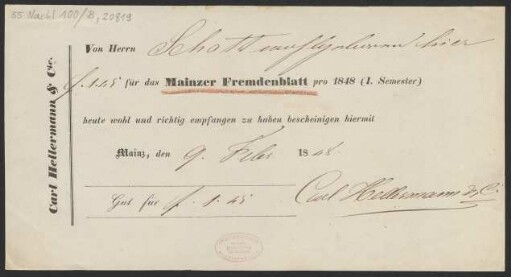 55 Nachl 100/B, 20819
Carl Hellermann & Cie.
Von Herrn Schott hier
f. 1.45 für das Mainzer Fremdenblatt pro 1848 (I. Semester)
heute wohl und richtig empfangen zu haben bescheinigen hiermit
Mainz, den 9. Febr 1848.
Gut für f. 1.45 Carl Hellermann & Cie